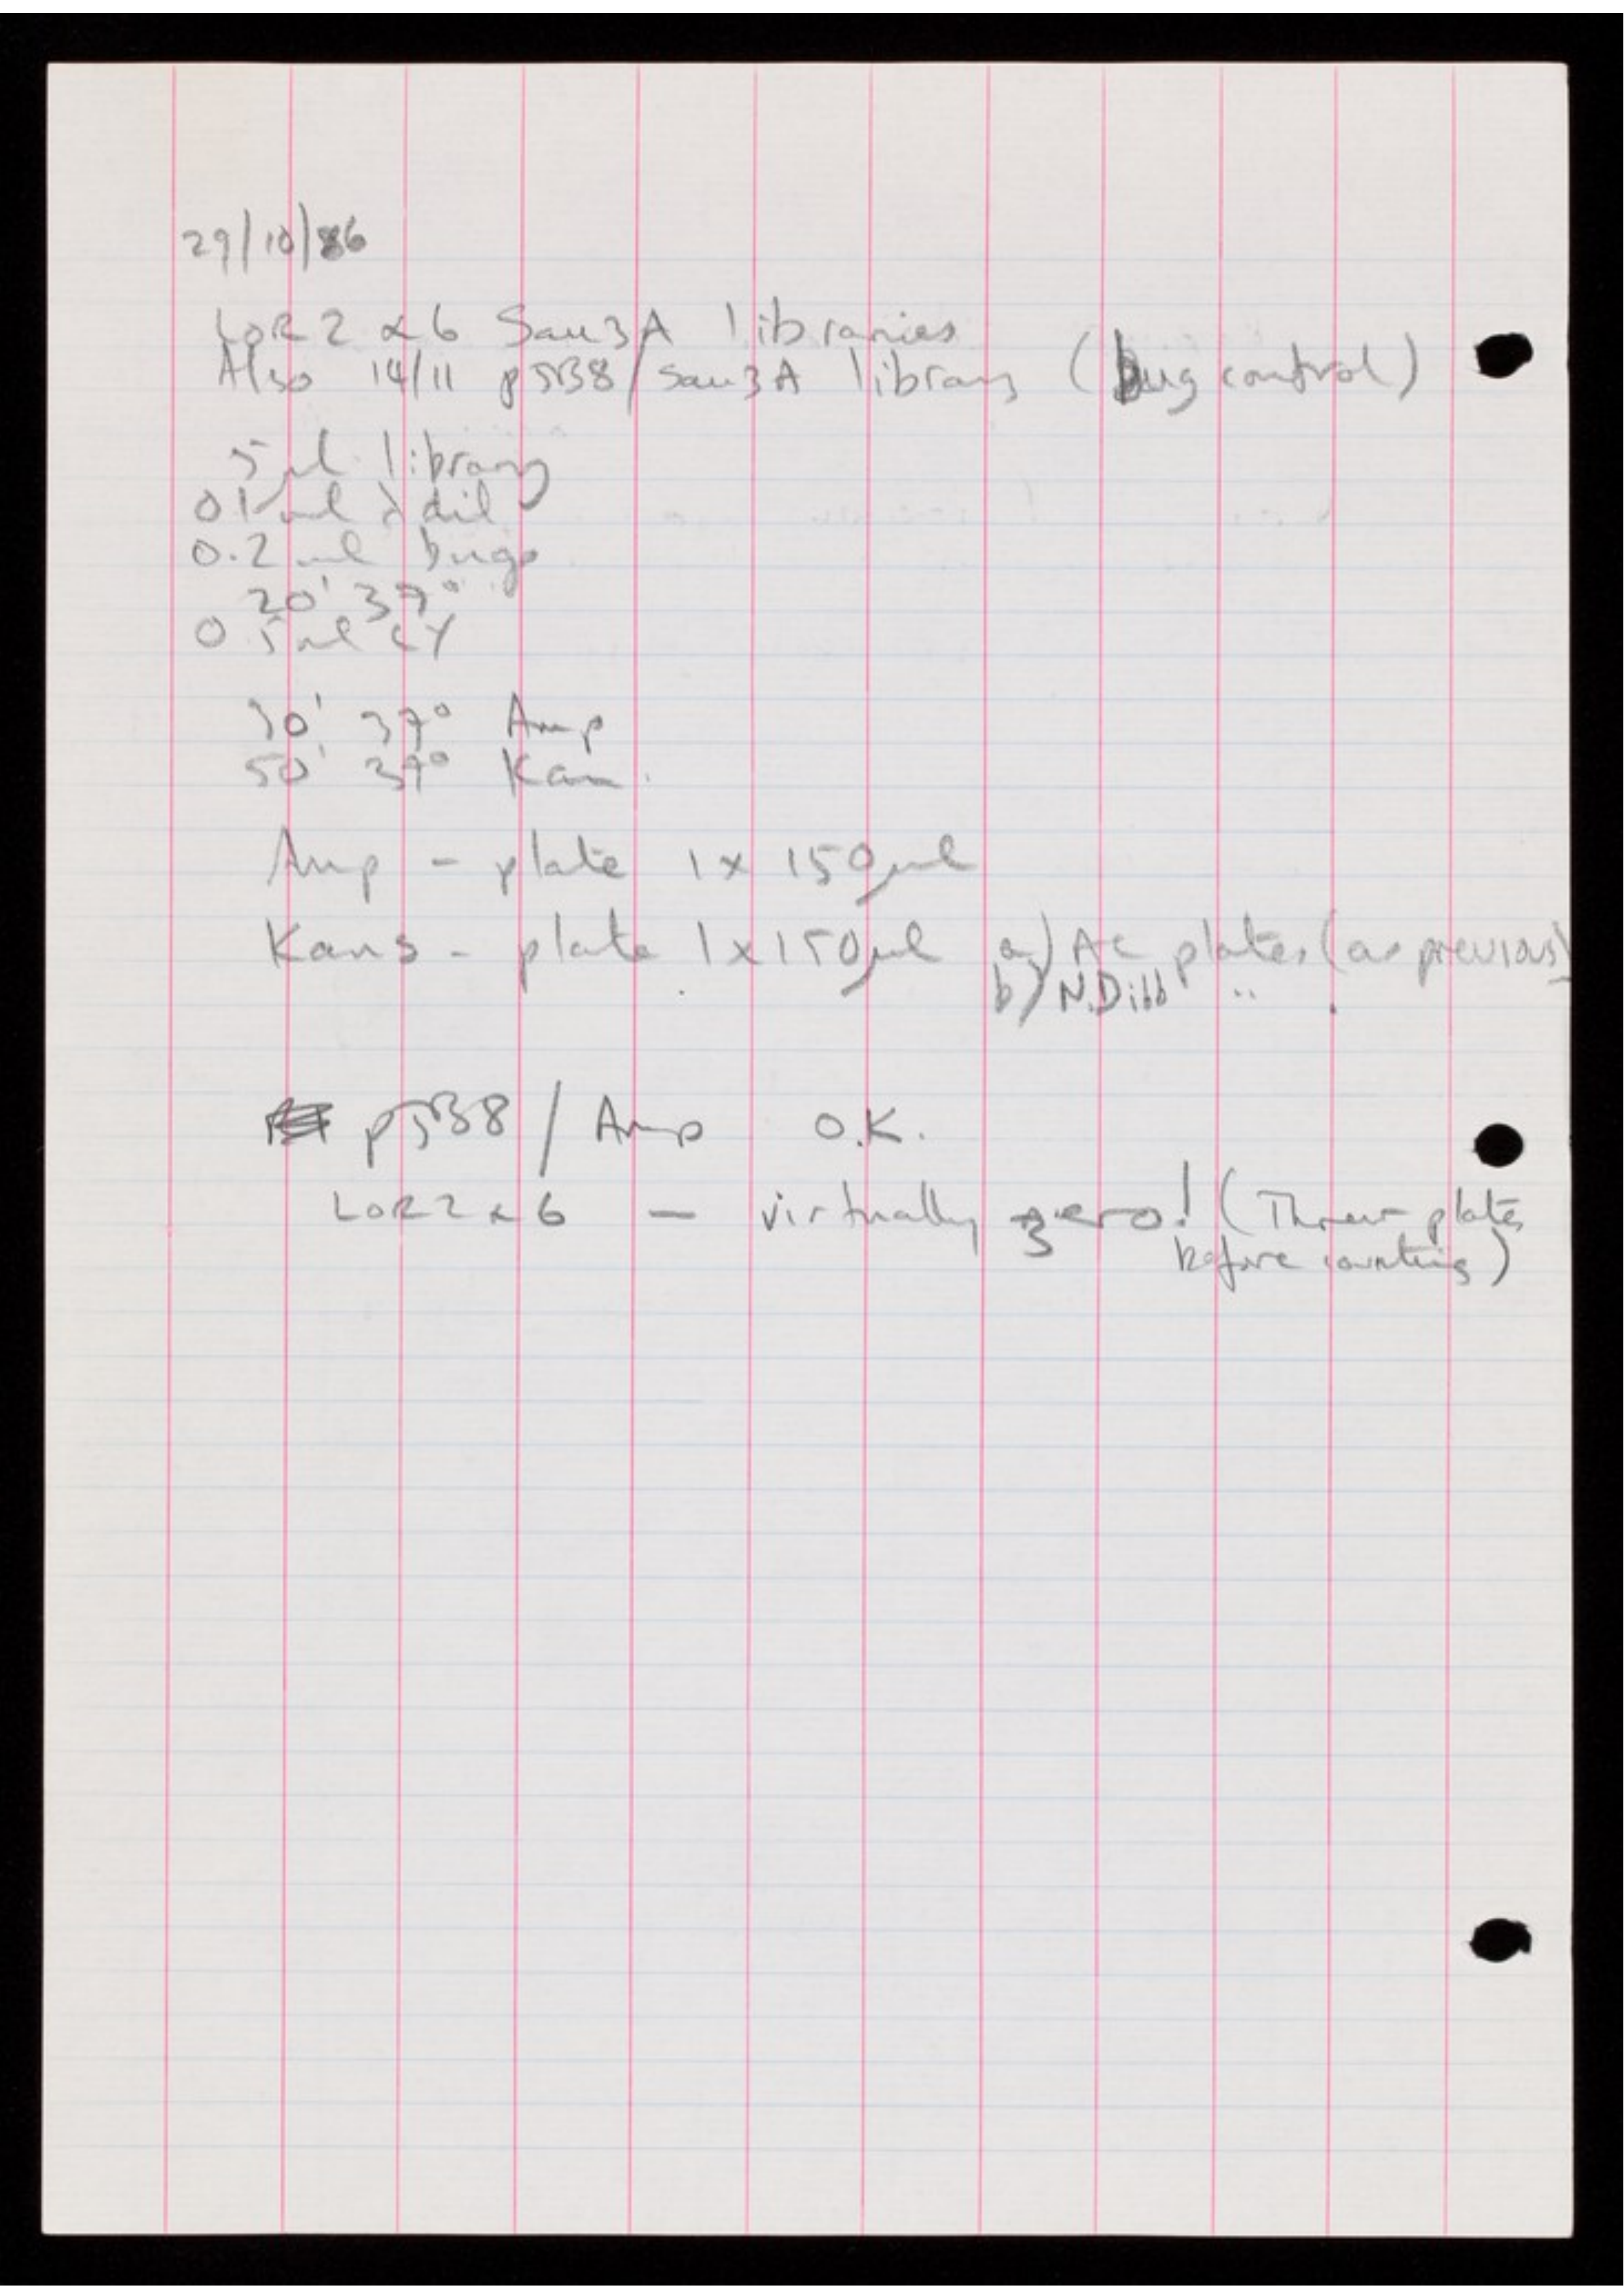 29/10/86
LOR 2 & 6 Sau3A libraries
Also 14/11 pJB8/Sau3A library (bug control)
5µl library
0.1 ml λ dil
0.2 ml bugs
20' 37°
0.5 ml
30' 37° Amp
50' 37° Kan.
Amp - plate 1 x 150µl
Kans - plate 1 x 150µl a) AC plates (as previous)
b) N.Dibb " .
pJB8 / Amp O.K.
LOR 2 & 6 - virtually zero! (Threw plates
before counting)